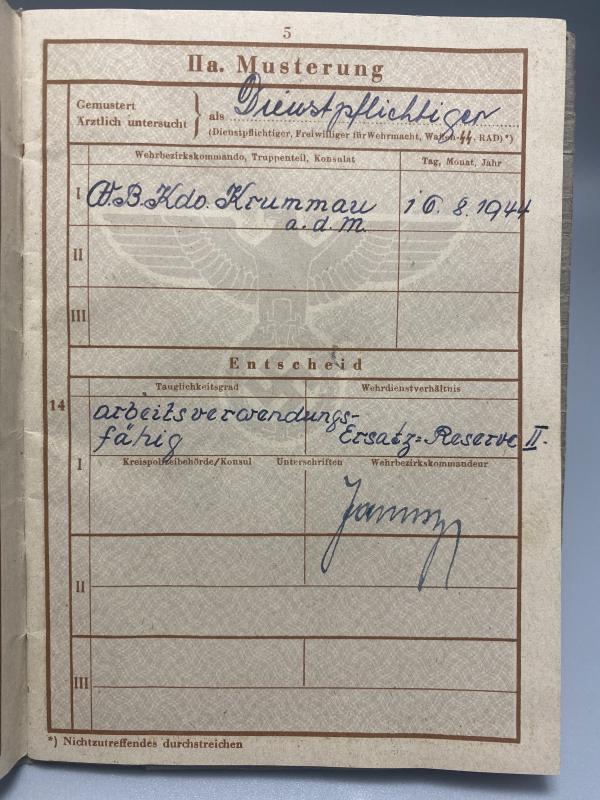 5
IIa. Musterung
Gemustert
Ärztlich untersucht } als Dienstpflichtiger
(Dienstpflichtiger, Freiwilliger für Wehrmacht, Waffen-ᛋᛋ, RAD)*)
Wehrbezirkskommando, Truppenteil, Konsulat Tag, Monat, Jahr
I W.B.Kdo. Krummau 16.8.1944
a.d.M.
II
III
Entscheid
Tauglichkeitsgrad Wehrdienstverhältnis
14
arbeitsverwendungs-
fähig Ersatz-Reserve II.
I Kreispolizeibehörde/Konsul Unterschriften Wehrbezirkskommandeur
II
III
*) Nichtzutreffendes durchstreichen